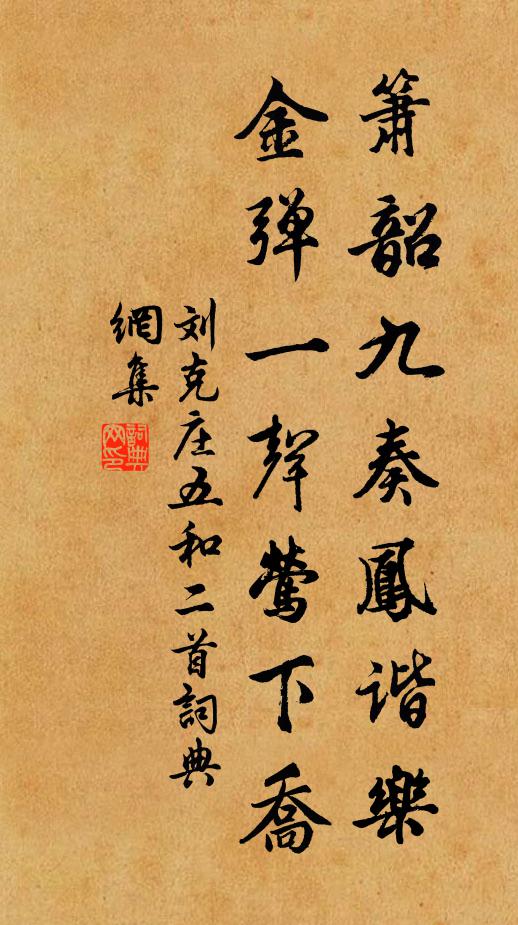 箫韶九奏鳳谐樂
金弹一聲莺下喬
刘克庄五和二首詞典
網集
詞典網印